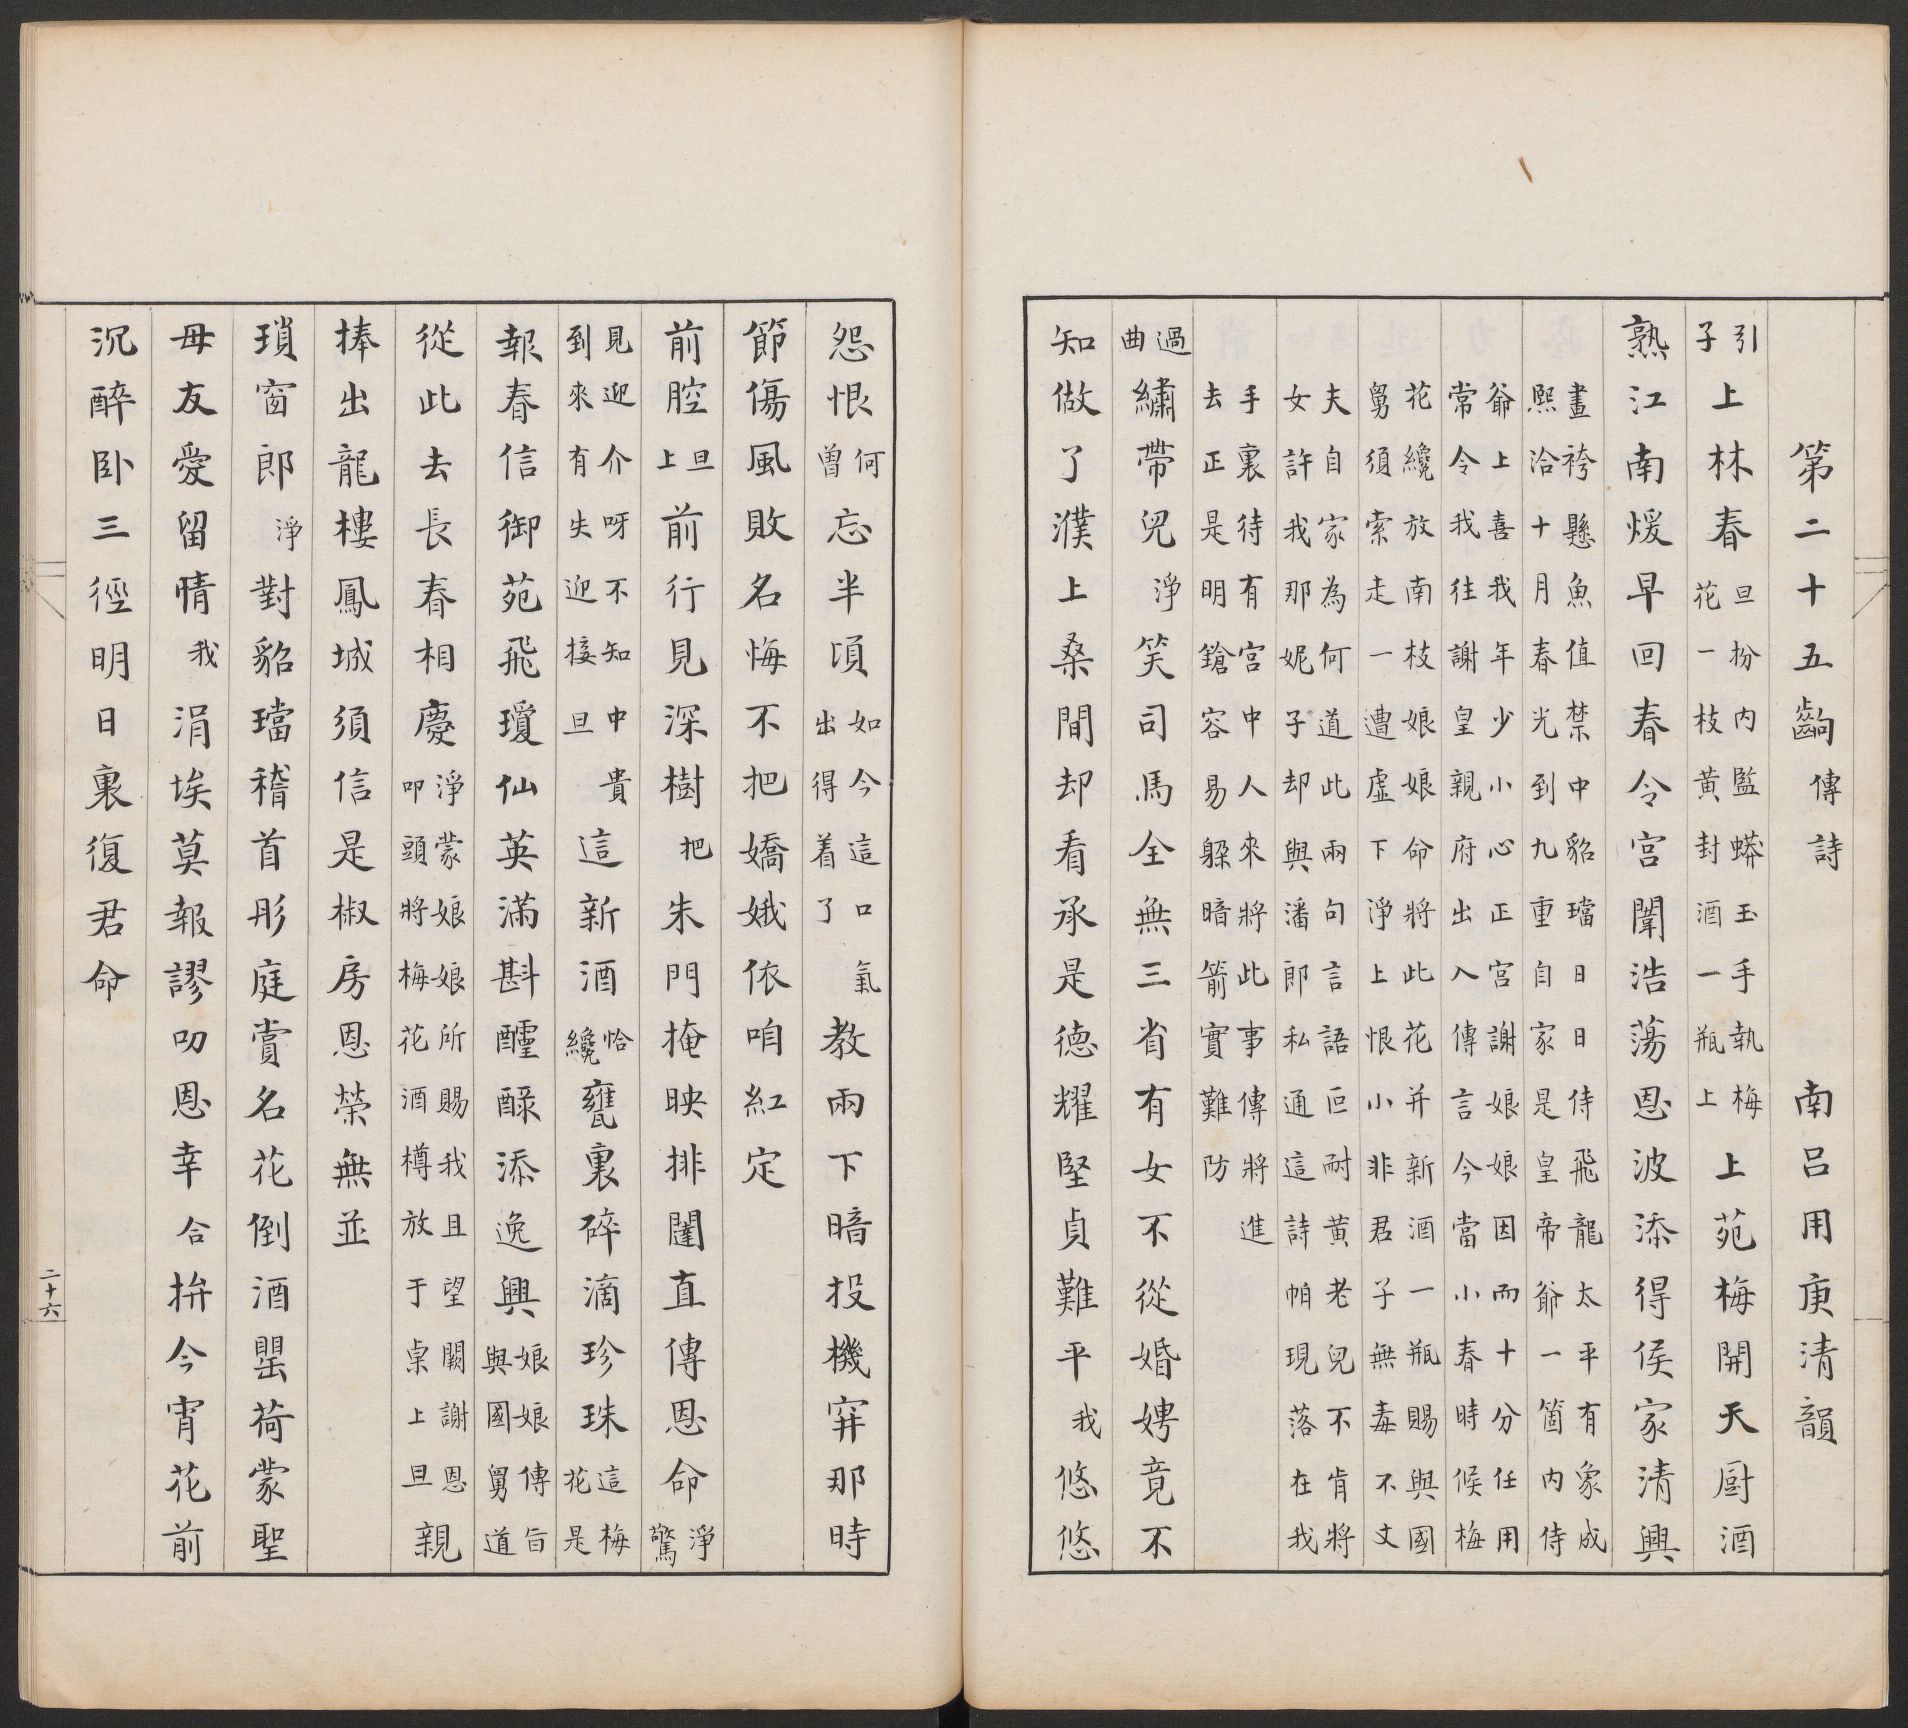 第二十五齣 傳詩 南呂用庚清韻
引子 上林春 旦扮内監蟒玉手執梅花一枝黃封酒一瓶上 上苑梅開天厨酒
熟江南煖早回春令宮闈浩蕩恩波添得侯家清興
畫袴懸魚值禁中貂璫日日侍飛龍太平有象成
熙洽十月春光到九重自家是皇帝爺一箇内侍
爺上喜我年少小心正宮謝娘娘因而十分任用
常令我往謝皇親府出入傳言今當小春時候梅
花纔放南枝娘娘命將此花并新酒一瓶賜與國
舅須索走一遭虛下淨上恨小非君子無毒不丈
夫自家為何道此兩句言語叵耐黃老兒不肯將
女許我那妮子却與潘郎私通這詩帕現落在我
手裏待有宮中人來將此事傳將進
去正是明鎗容易躱暗箭實難防
過曲 繡帶兒 淨 笑司馬全無三省有女不從婚娉竟不
知做了濮上桑間却看承是德耀堅貞難平 我 悠悠
怨恨 何曾 忘半頃 如今這口氣出得着了 教兩下暗投機穽那時
節傷風敗名悔不把嬌娥依咱紅定
前腔 旦上 前行見深樹 把 朱門掩映排闥直傳恩命 淨驚
見迎介呀不知中貴到來有失迎接旦 這新酒 恰纔 甕裏碎滴珍珠 這梅花是
報春信御苑飛瓊仙英滿斟醽醁添逸興 娘娘傳旨與國舅道
從此去長春相慶 淨蒙娘娘所賜我且望闕謝恩叩頭將梅花酒樽放于桌上旦 親
捧出龍樓鳳城須信是椒房恩榮無並
瑣窗郎 淨 對貂璫稽首彤庭賞名花倒酒罌荷蒙聖
母友愛留情 我 涓埃莫報謬叨恩幸 合 拚今宵花前
沉醉卧三徑明日裏復君命
二十六